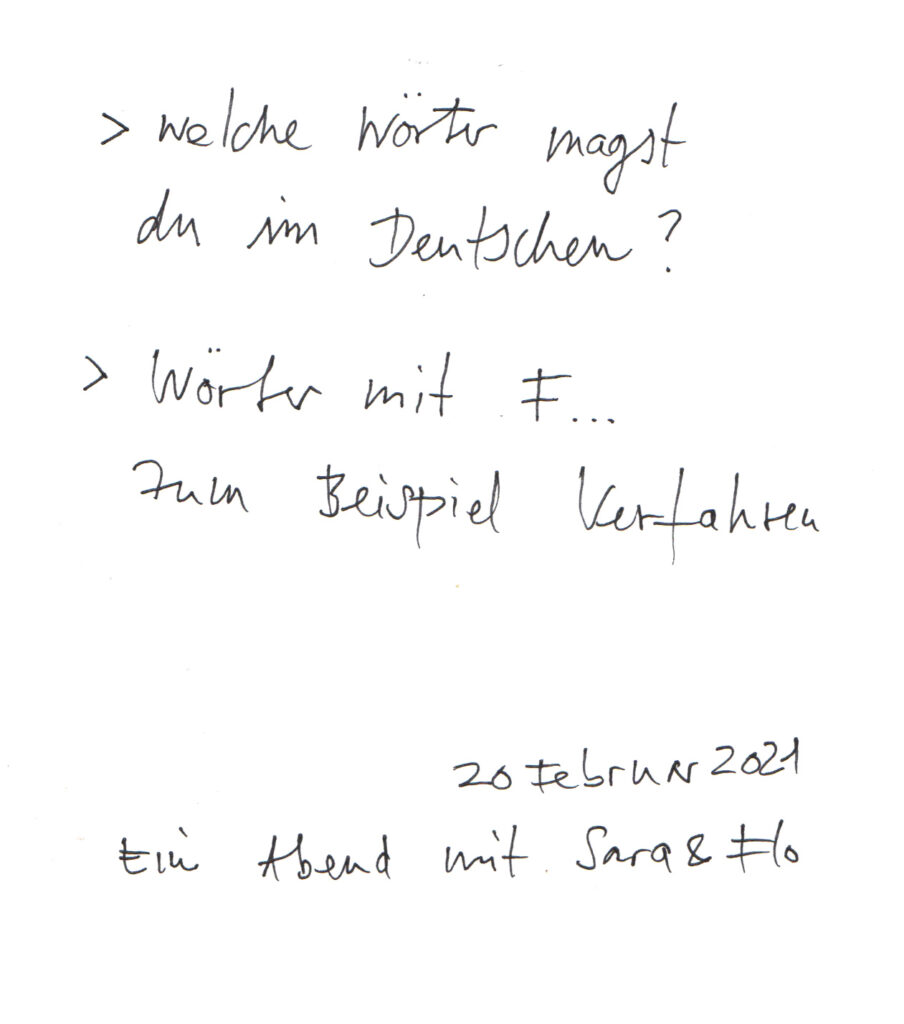 > welche Wörter magst
du im Deutschen?
> Wörter mit F...
zum Beispiel Verfahren
20 Februar 2021
Ein Abend mit Sara & Flo